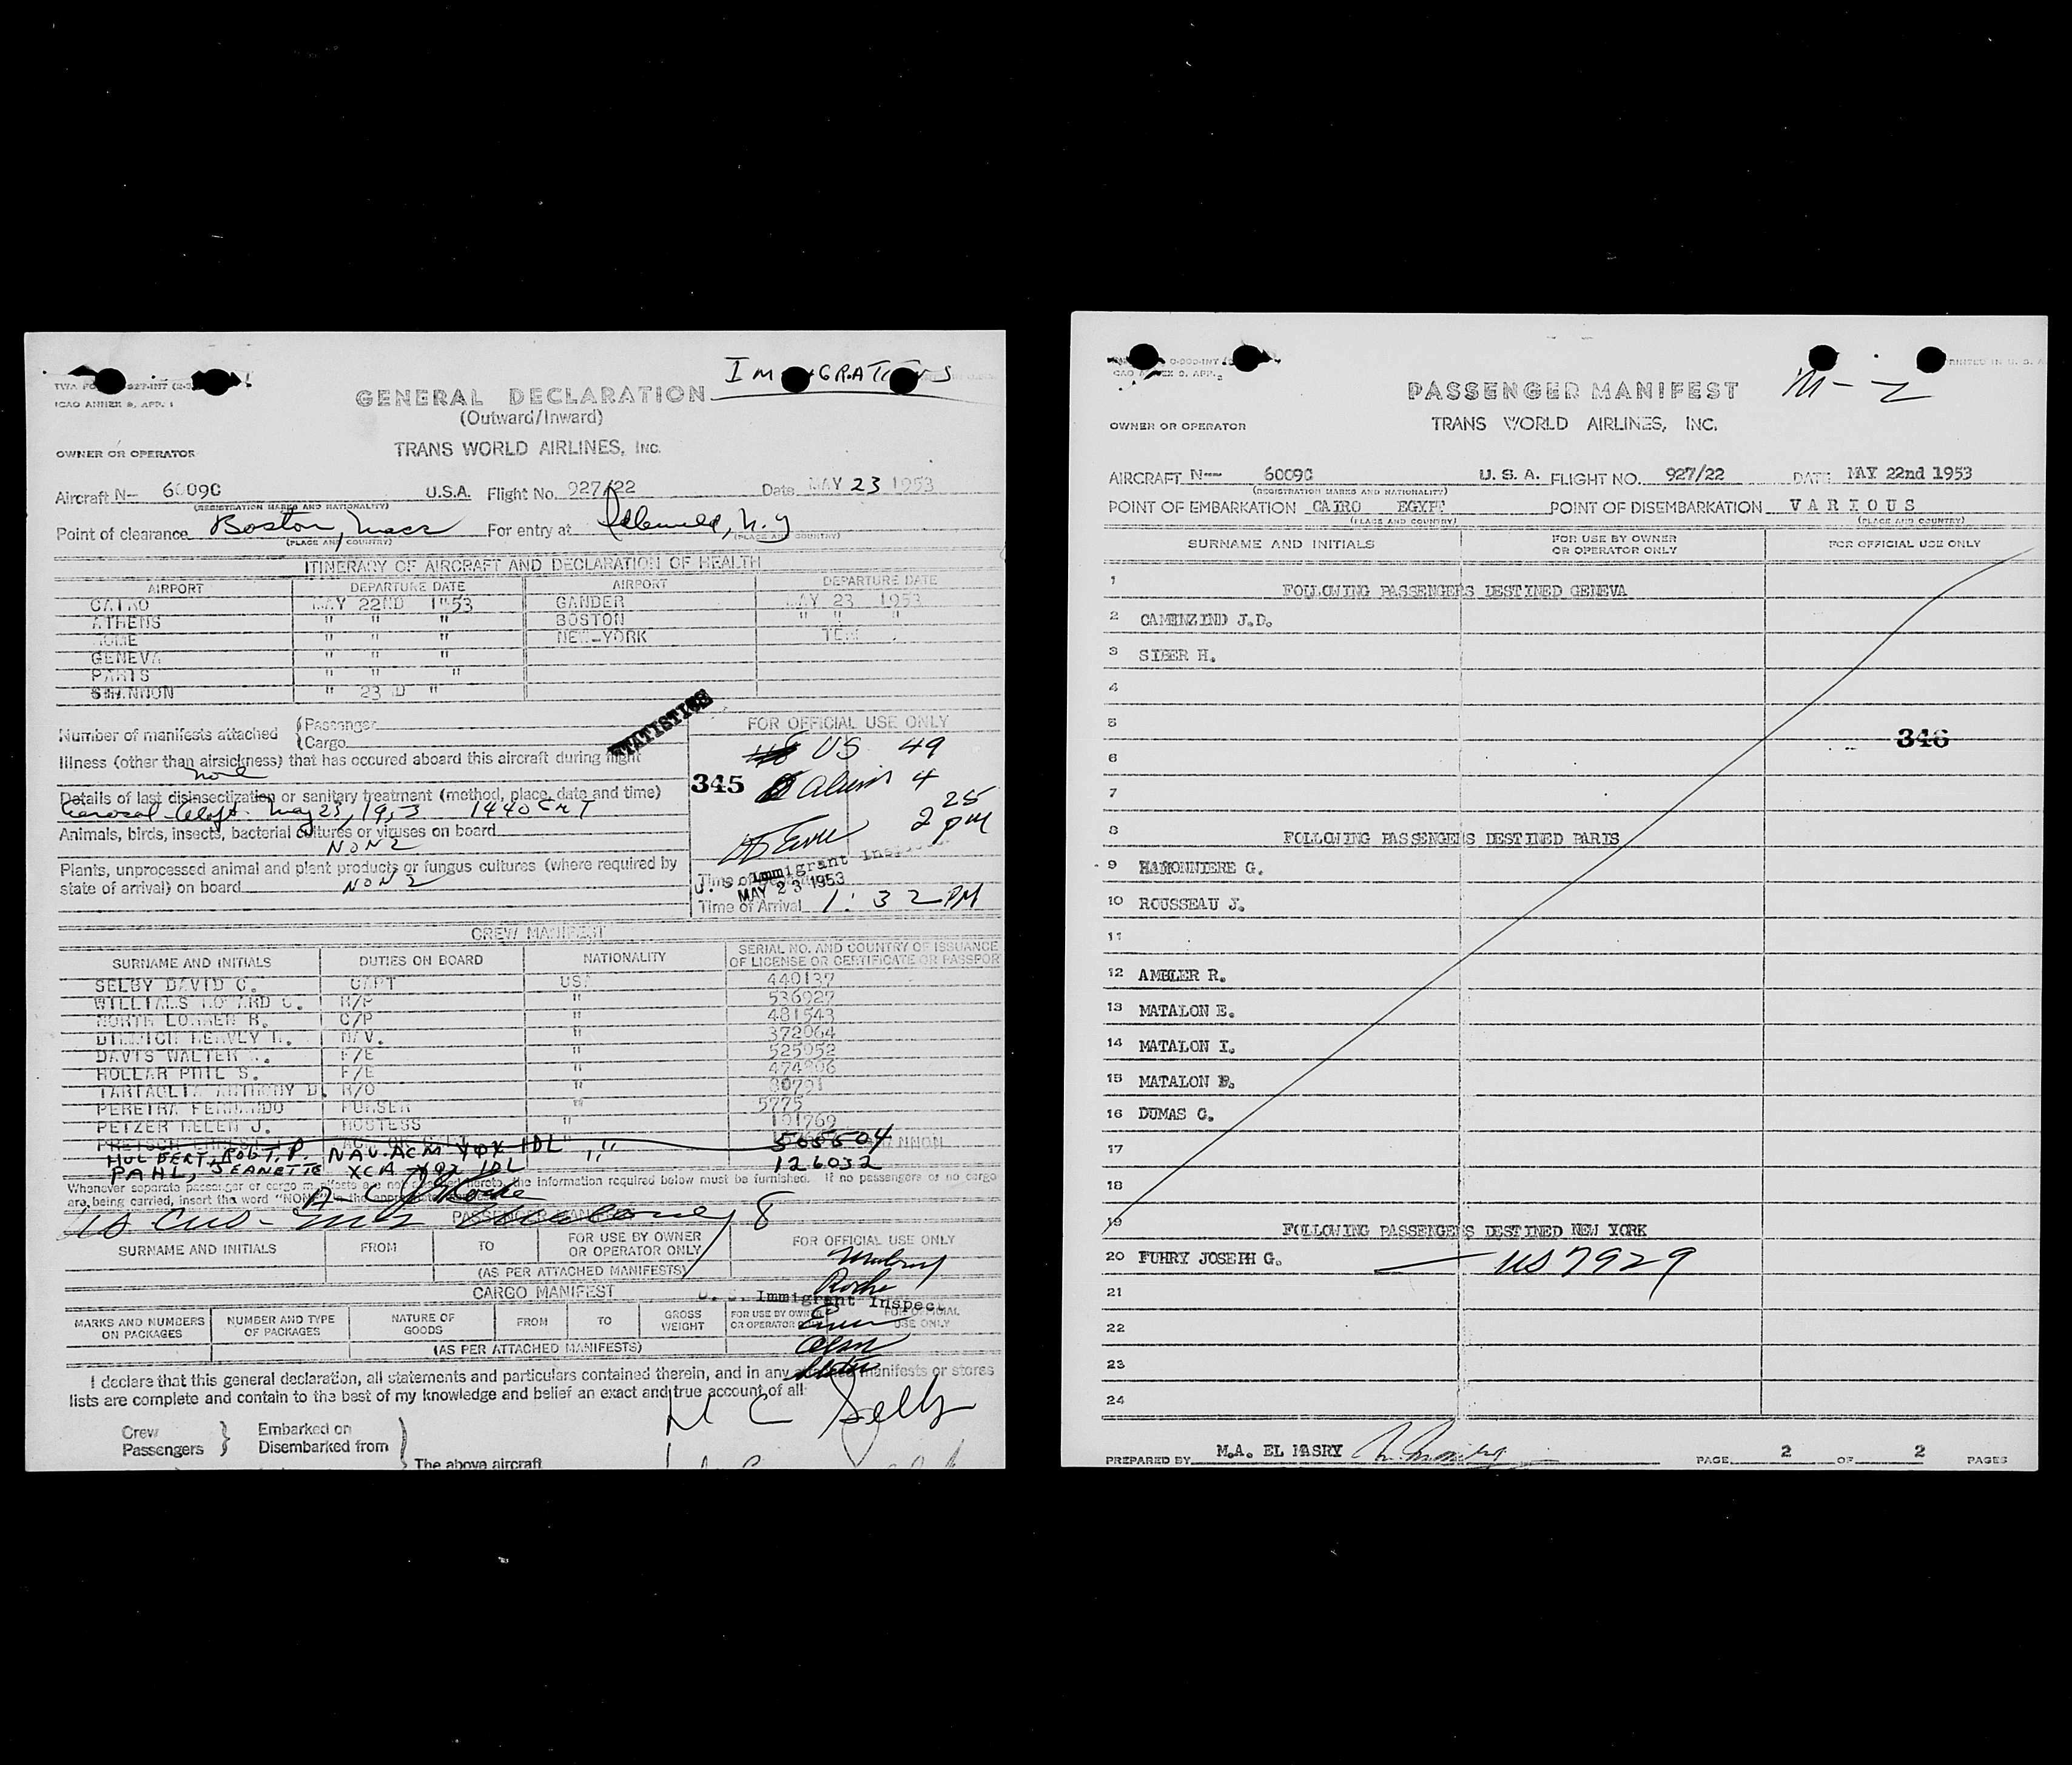 IMMIGRATIONS
ICAO ANNEX 9, APP. 1
GENERAL DECLARATION
(Outward/Inward)
OWNER OR OPERATOR
TRANS WORLD AIRLINES, INC.
Aircraft N- 6009C U.S.A. Flight No. 927/22 Date MAY 23 1953
(REGISTRATION MARKS AND NATIONALITY)
Point of clearance Boston, Mass For entry at Idlewild, N.Y
(PLACE AND COUNTRY) (PLACE AND COUNTRY)
ITINERARY OF AIRCRAFT AND DECLARATION OF HEALTH
AIRPORT DEPARTURE DATE AIRPORT DEPARTURE DATE
CAIRO MAY 22ND 1953 GANDER MAY 23 1953
ATHENS " " " BOSTON " " "
ROME " " " NEW-YORK TERM
GENEVA " " "
PARIS " " "
SHANNON " 23RD "
STATISTICS
Number of manifests attached {Passenger
{Cargo
FOR OFFICIAL USE ONLY
US 49
Illness (other than airsickness) that has occured aboard this aircraft during flight
none
345 Aliens 4
Details of last disinsectization or sanitary treatment (method, place, date and time)
Aerosol May 23, 1953 1440 GMT
2 25 pm
Animals, birds, insects, bacterial cultures or viruses on board
NONE
Plants, unprocessed animal and plant products or fungus cultures (where required by
state of arrival) on board NONE
U. S. Immigrant Inspector
MAY 23 1953
Time of Arrival 1:32 PM
CREW MANIFEST
SURNAME AND INITIALS DUTIES ON BOARD NATIONALITY SERIAL NO. AND COUNTRY OF ISSUANCE
OF LICENSE OR CERTIFICATE OR PASSPOR
SELBY DAVID C. CAPT USA 440137
WILLIAMS HOWARD C. R/P " 536927
NORTH LORMER R. C/P " 481543
NAV. " 372064
DAVIS WALTER F/E " 525952
HOLLAR PHIL S. F/E " 474806
TARTAGLIA ANTHONY D. R/O " 80791
PEREIRA FERNANDO PURSER " 5775
PETZER HELEN J. HOSTESS " 101769
HULBERT, ROBT. P. NAV. ACM IDL " 565504
PAHL, JEANETTE XCA IDL 126032
Whenever separate passenger or cargo manifests are not attached hereto, the information required below must be furnished. If no passengers or no cargo
are being carried, insert the word "NONE" in the appropriate
PASSENGER MANIFEST 8
SURNAME AND INITIALS FROM TO FOR USE BY OWNER
OR OPERATOR ONLY FOR OFFICIAL USE ONLY
(AS PER ATTACHED MANIFESTS)
CARGO MANIFEST
U. S. Immigrant Inspect
MARKS AND NUMBERS
ON PACKAGES NUMBER AND TYPE
OF PACKAGES NATURE OF
GOODS FROM TO GROSS
WEIGHT FOR USE BY OWNER
OR OPERATOR FOR OFFICIAL
USE ONLY
(AS PER ATTACHED MANIFESTS)
I declare that this general declaration, all statements and particulars contained therein, and in any attached manifests or stores
lists are complete and contain to the best of my knowledge and belief an exact and true account of all:
D C Selby
Crew
Passengers } Embarked on
Disembarked from )
The above aircraft
PRINTED IN U. S. A
PASSENGER MANIFEST M-2
OWNER OR OPERATOR TRANS WORLD AIRLINES, INC.
AIRCRAFT N-- 6009C U. S. A. FLIGHT NO. 927/22 DATE MAY 22nd 1953
(REGISTRATION MARKS AND NATIONALITY)
POINT OF EMBARKATION CAIRO EGYPT POINT OF DISEMBARKATION VARIOUS
(PLACE AND COUNTRY) (PLACE AND COUNTRY)
SURNAME AND INITIALS FOR USE BY OWNER
OR OPERATOR ONLY FOR OFFICIAL USE ONLY
1 FOLLOWING PASSENGERS DESTINED GENEVA
2 CAMENZIND J.D.
3 SIBER H.
4
5
346
6
7
8 FOLLOWING PASSENGERS DESTINED PARIS
9 HAMONNIERE G.
10 ROUSSEAU J.
11
12 AMBLER R.
13 MATALON E.
14 MATALON I.
15 MATALON B.
16 DUMAS G.
17
18
19 FOLLOWING PASSENGERS DESTINED NEW YORK
20 FUHRY JOSEPH G. — US 7929
21
22
23
24
PREPARED BY M.A. EL MASRY PAGE 2 OF 2 PAGES